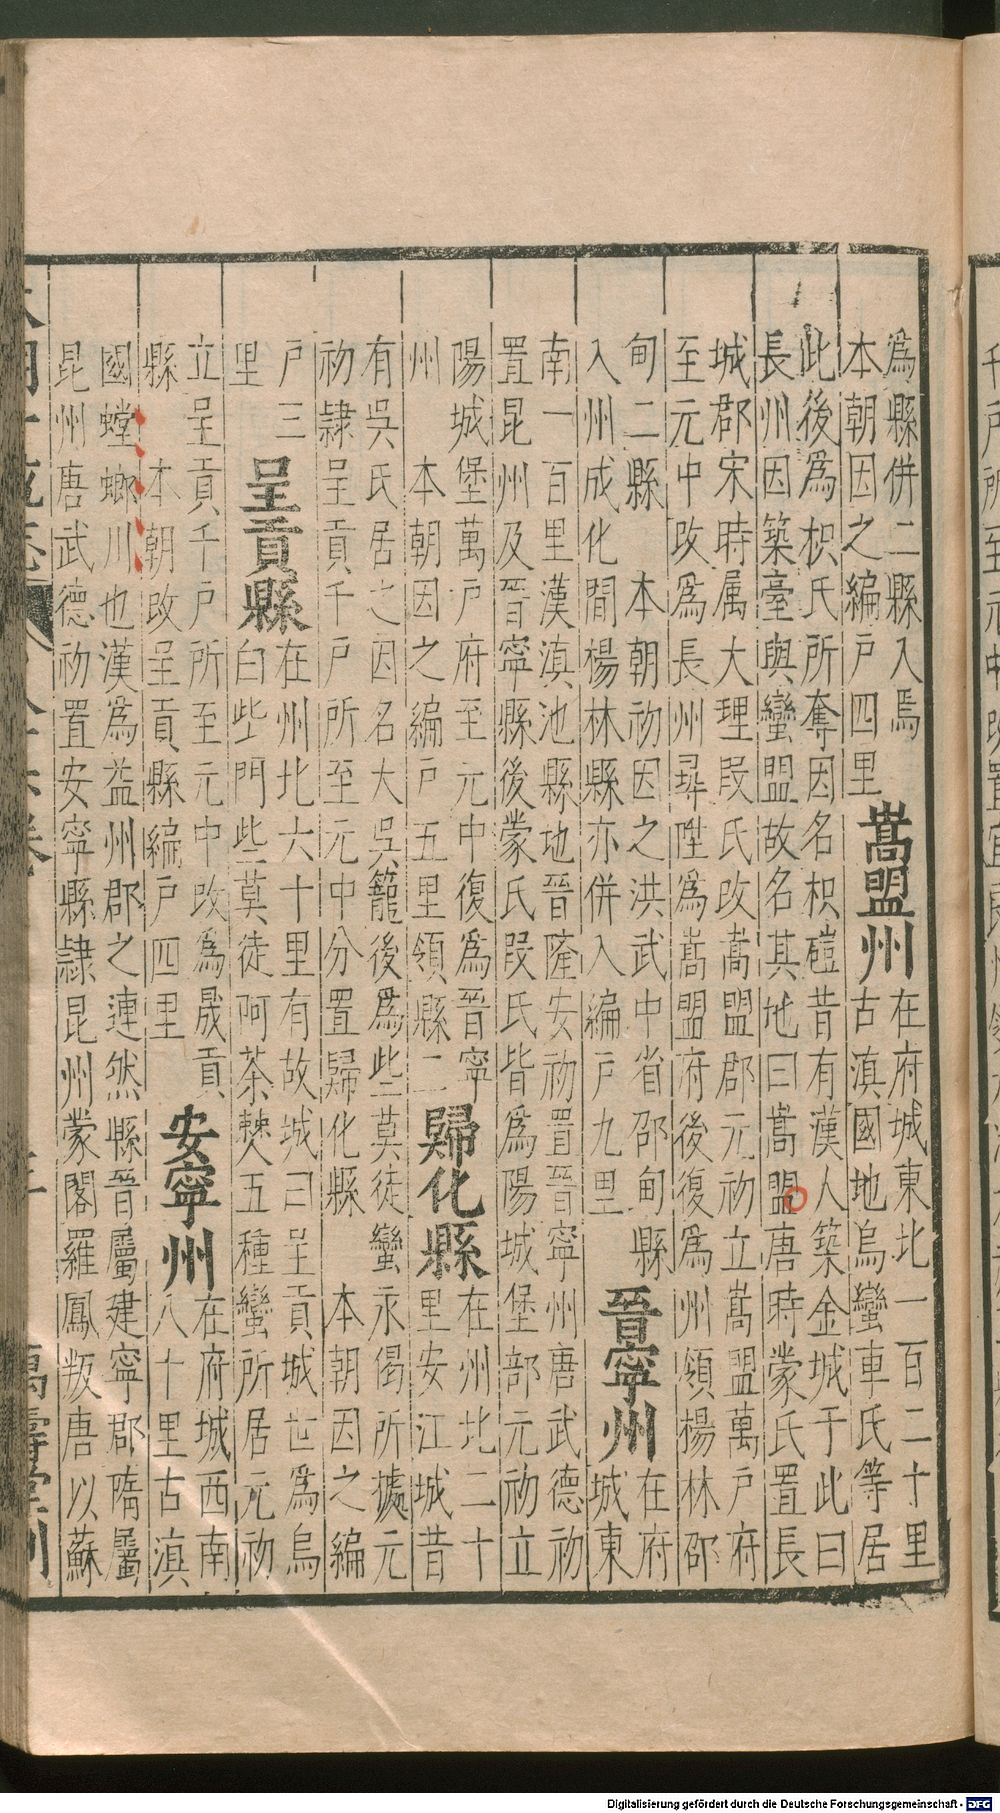 爲縣併二縣入焉
本朝因之編戶四里
嵩盟州
在府城東北一百二十里
古滇國地烏蠻車氏等居
此後爲枳氏所奪因名枳磑昔有漢人築金城于此曰
長州因築臺與蠻盟故名其地曰嵩盟唐時蒙氏置長
城郡宋時属大理段氏改嵩盟郡元初立嵩盟萬戶府
至元中改爲長州尋陞爲嵩盟府後復爲州領楊林邵
甸二縣 本朝初因之洪武中省邵甸縣
入州成化間楊林縣亦併入編戶九里
晉寧州
在府
城東
南一百里漢滇池縣地晉隆安初置晉寧州唐武德初
置昆州及晉寧縣後蒙氏段氏皆爲陽城堡部元初立
陽城堡萬戶府至元中復爲晉寧
州 本朝因之編戶五里領縣二
歸化縣
在州北二十
里安江城昔
有吳氏居之因名大吳籠後爲些莫徒蠻永偈所據元
初隷呈貢千戶所至元中分置歸化縣 本朝因之編
戶三
里
呈貢縣
在州北六十里有故城曰呈貢城世爲烏
白些門些莫徒阿茶棘五種蠻所居元初
立呈貢千戶所至元中改爲晟貢
縣 本朝改呈貢縣編戶四里
安寧州
在府城西南
八十里古滇
國螳螂川也漢爲益州郡之連然縣晉屬建寧郡隋屬
昆州唐武德初置安寧縣隷昆州蒙閣羅鳳叛唐以蘇
萬壽堂刊
Digitalisierung gefördert durch die Deutsche Forschungsgemeinschaft - DFG